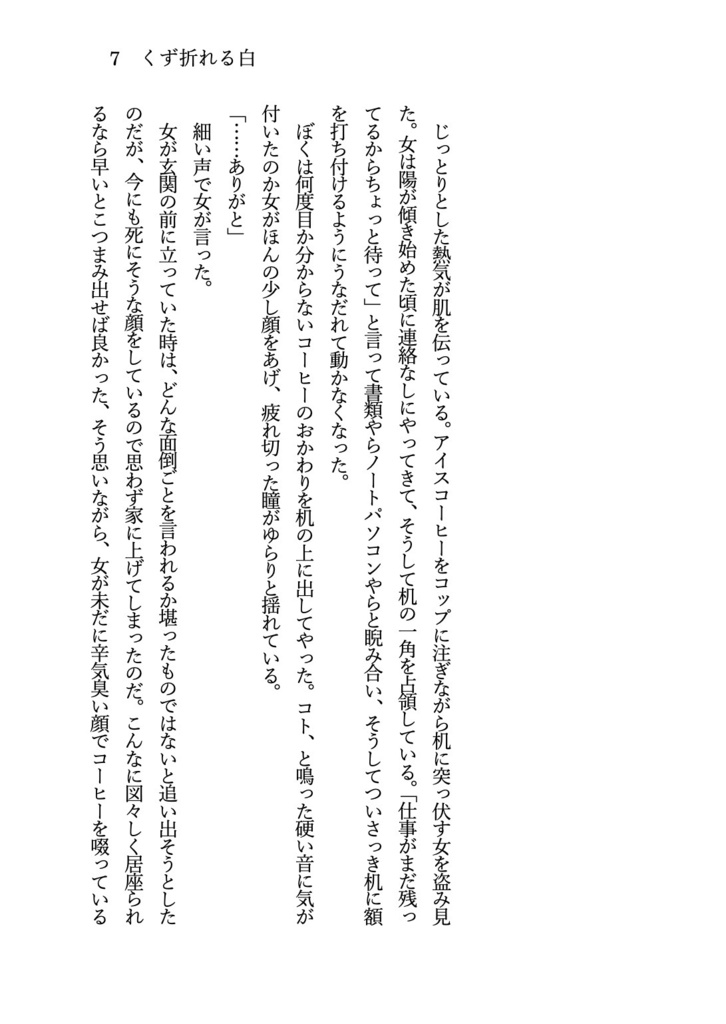 7 くず折れる白
じっとりとした熱気が肌を伝っている。アイスコーヒーをコップに注ぎながら机に突っ伏す女を盗み見
た。女は陽が傾き始めた頃に連絡なしにやってきて、そうして机の一角を占領している。「仕事がまだ残っ
てるからちょっと待って」と言って書類やらノートパソコンやらと睨み合い、そうしてついさっき机に額
を打ち付けるようにうなだれて動かなくなった。
ぼくは何度目か分からないコーヒーのおかわりを机の上に出してやった。コト、と鳴った硬い音に気が
付いたのか女がほんの少し顔をあげ、疲れ切った瞳がゆらりと揺れている。
「……ありがと」
細い声で女が言った。
女が玄関の前に立っていた時は、どんな面倒ごとを言われるか堪ったものではないと追い出そうとした
のだが、今にも死にそうな顔をしているので思わず家に上げてしまったのだ。こんなに図々しく居座られ
るなら早いとこつまみ出せば良かった、そう思いながら、女が未だに辛気臭い顔でコーヒーを啜っている